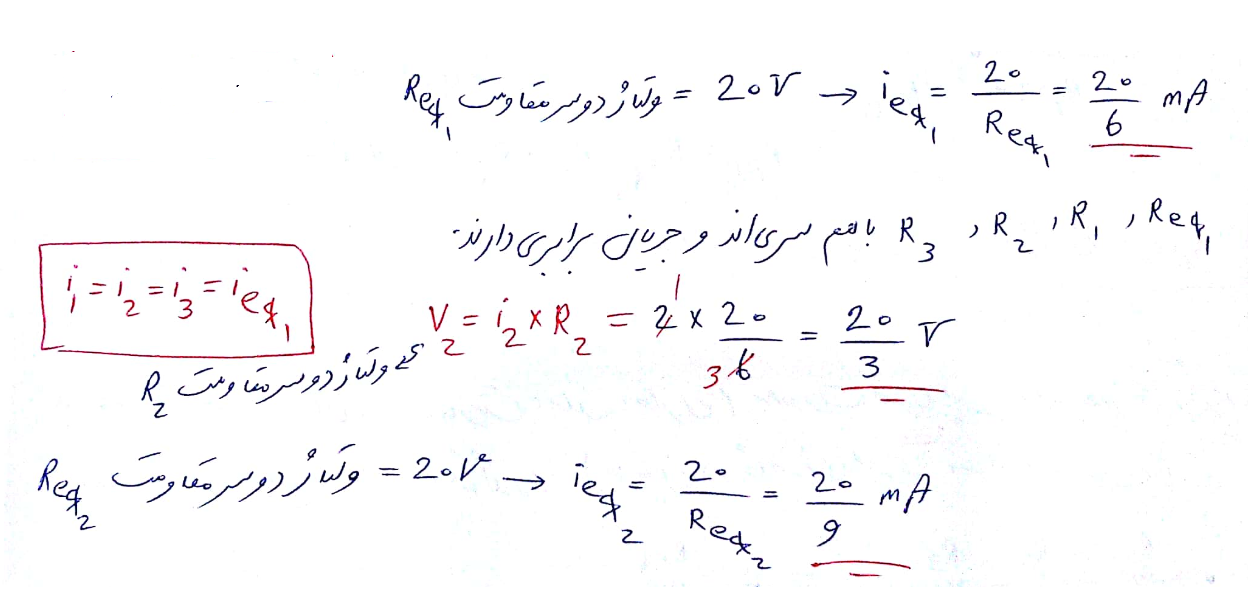 Req₁ ولتاژ دو سر مقاومت = 20V → ieq₁ = 20/Req₁ = 20/6 mA
Req₁ , R₁ , R₂ , R₃ باهم سری‌اند و جریان برابری دارند.
i₁ = i₂ = i₃ = ieq₁
V₂ = i₂ × R₂ = 2 × 20/6 = 20/3 V
1
3
ولتاژ دو سر مقاومت R₂
Req₂ ولتاژ دو سر مقاومت = 20V → ieq₂ = 20/Req₂ = 20/9 mA